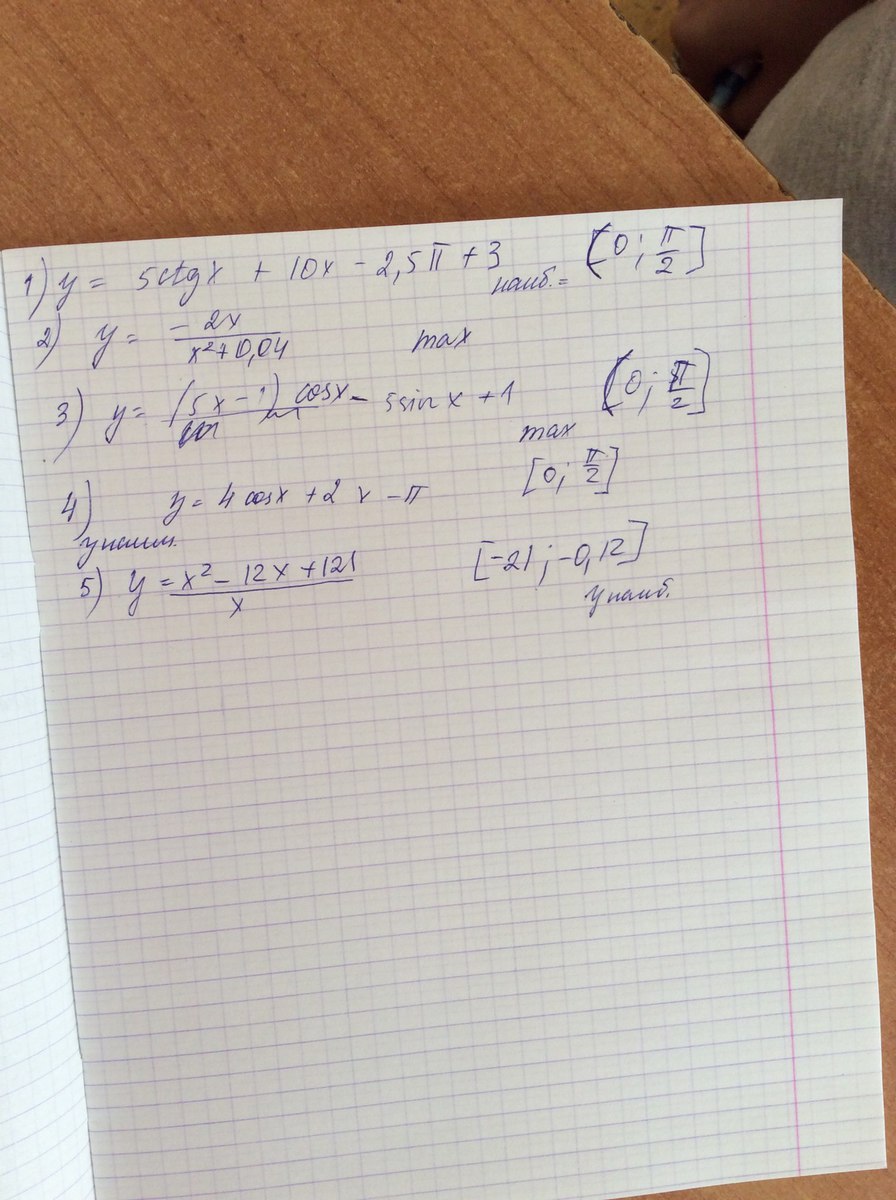 1) y = 5ctgx + 10x - 2,5π + 3 наиб.= (0; π/2]
2) y = -2x/(x²+0,04) max
3) y = (5x-1) cosx - 5sinx + 1 (0; π/2]
max
4) y = 4cosx + 2x - π [0; π/2]
y наим.
5) y = (x² - 12x + 121)/x [-21; -0,12]
y наиб.